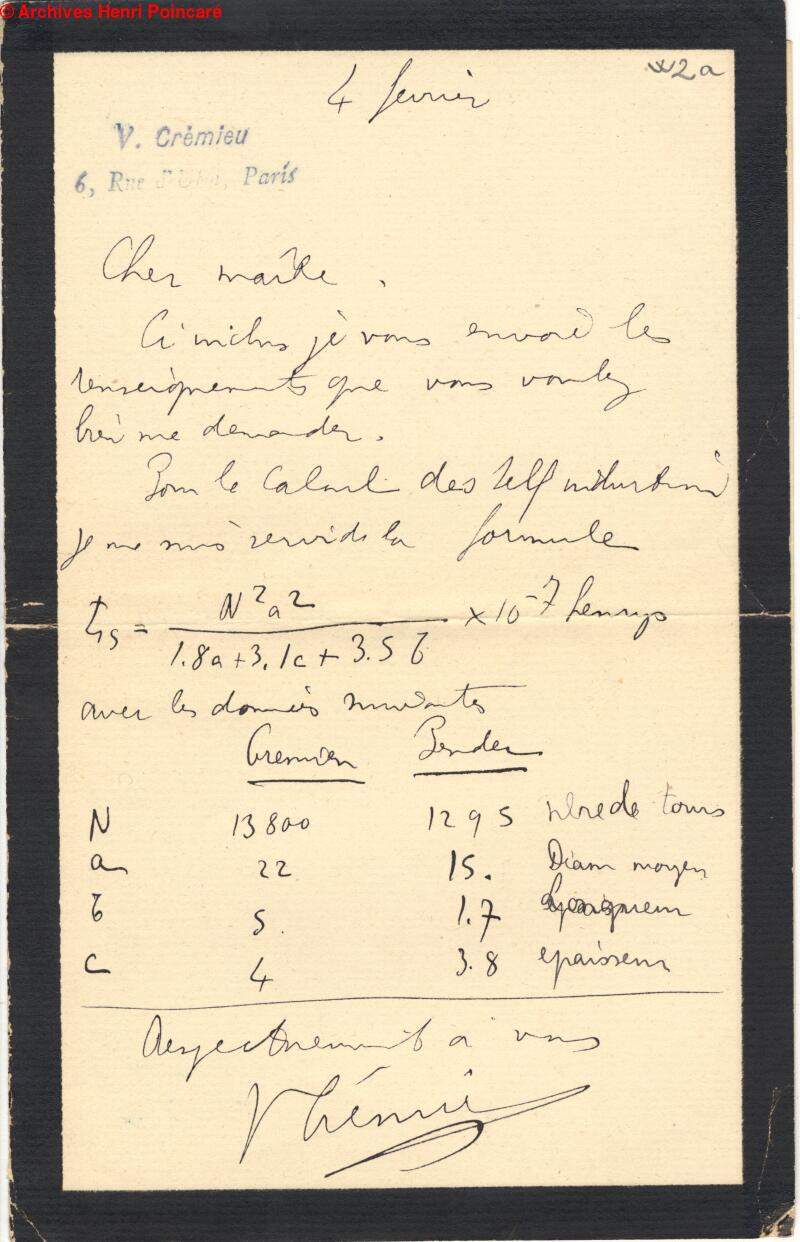 © Archives Henri Poincaré
W2a
4 février
V. Crémieu
6, Rue Paris
Cher maître,
Ci inclus je vous envoie les
renseignements que vous voulez
bien me demander.
Pour le calcul des self induction
je me suis servi de la formule
= N²a² / 1.8a + 3.1c + 3.5b × 10⁻⁷ henrys
avec les données suivantes
Crémieu Pender
N 13800 1295 nbre de tours
a 22 15. Diam moyen
b 5. 1.7
c 4 3.8 epaisseur
Respectueusement à vous
VCrémieu